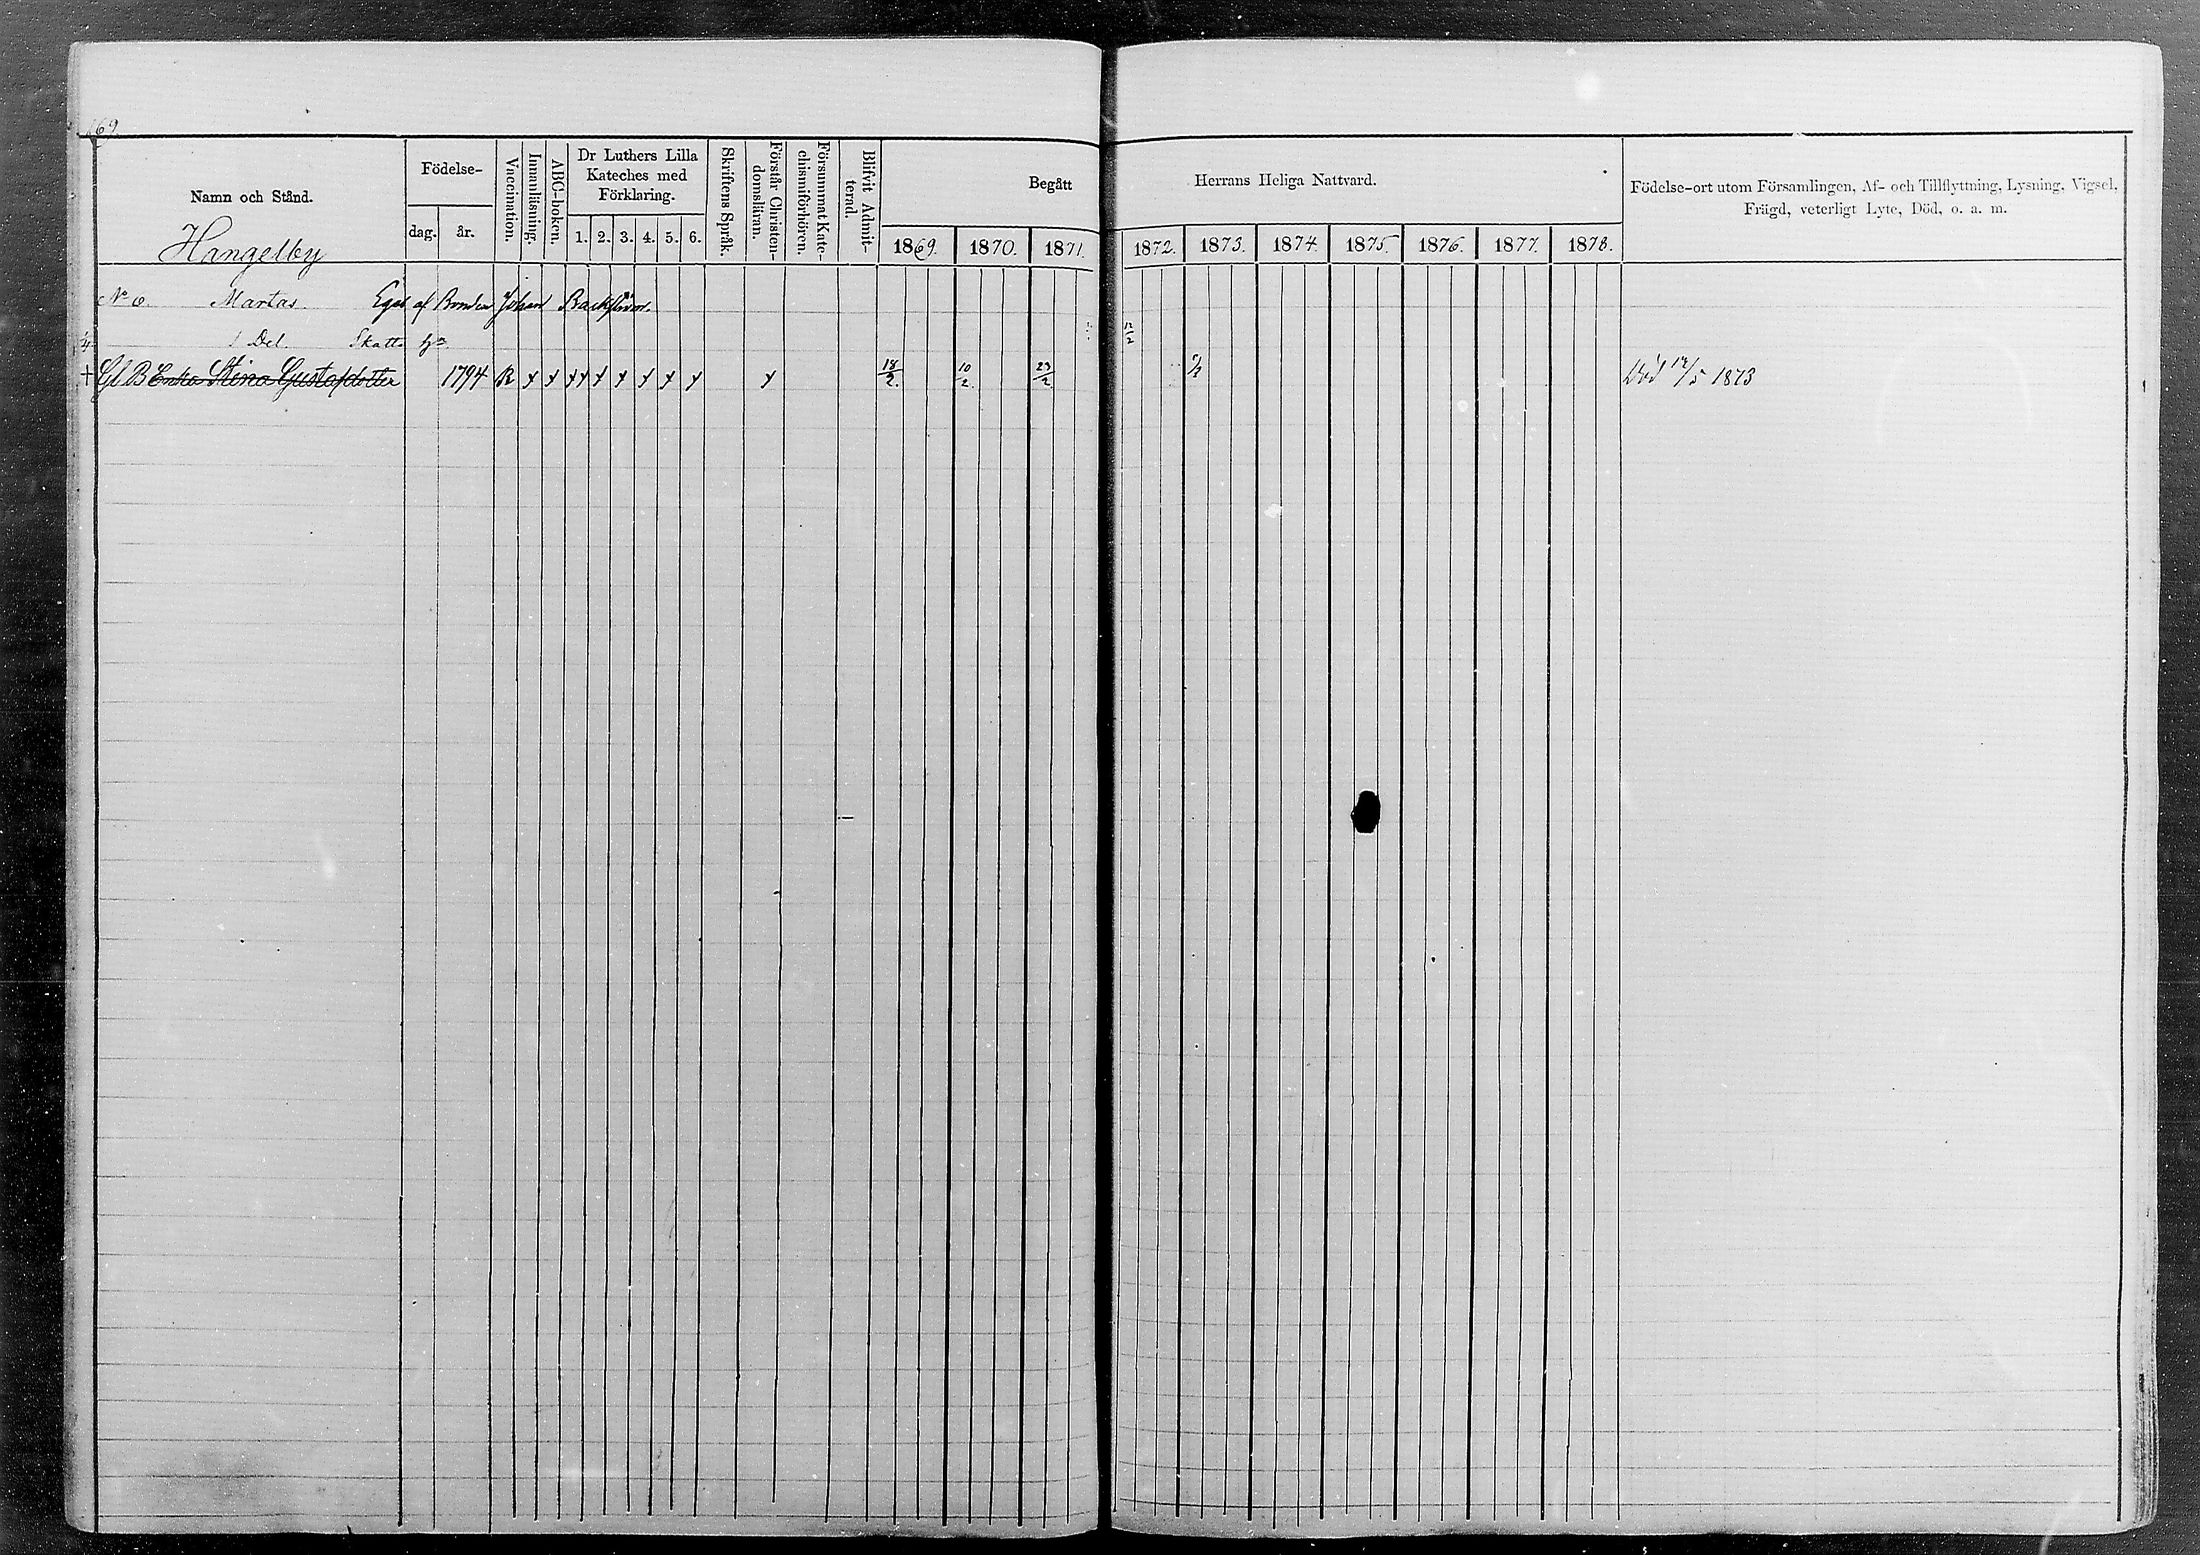 169.
Namn och Stånd.
Födelse-
dag. år.
Vaccination.
Innanläsning.
ABC-boken.
Dr Luthers Lilla
Kateches med
Förklaring.
1. 2. 3. 4. 5. 6.
Skriftens Språk.
Förstår Christen-
domsläran.
Försummat Kate-
chismiförhören.
Blifvit Admit-
terad.
Begått
Herrans Heliga Nattvard.
1869. 1870. 1871. 1872. 1873. 1874. 1875. 1876. 1877. 1878.
Födelse-ort utom Församlingen, Af- och Tillflyttning, Lysning, Vigsel,
Frägd, veterligt Lyte, Död, o. a. m.
Hangelby
No 6. Martas. Eges af Bonden Johan Backström.
1 Del. Skatte
12/2
+ Gl B Enka Stina Gustafsdotter 1794 R x x x x x x x x x x 18/2. 10/2. 23/2 Död 12/5 1873